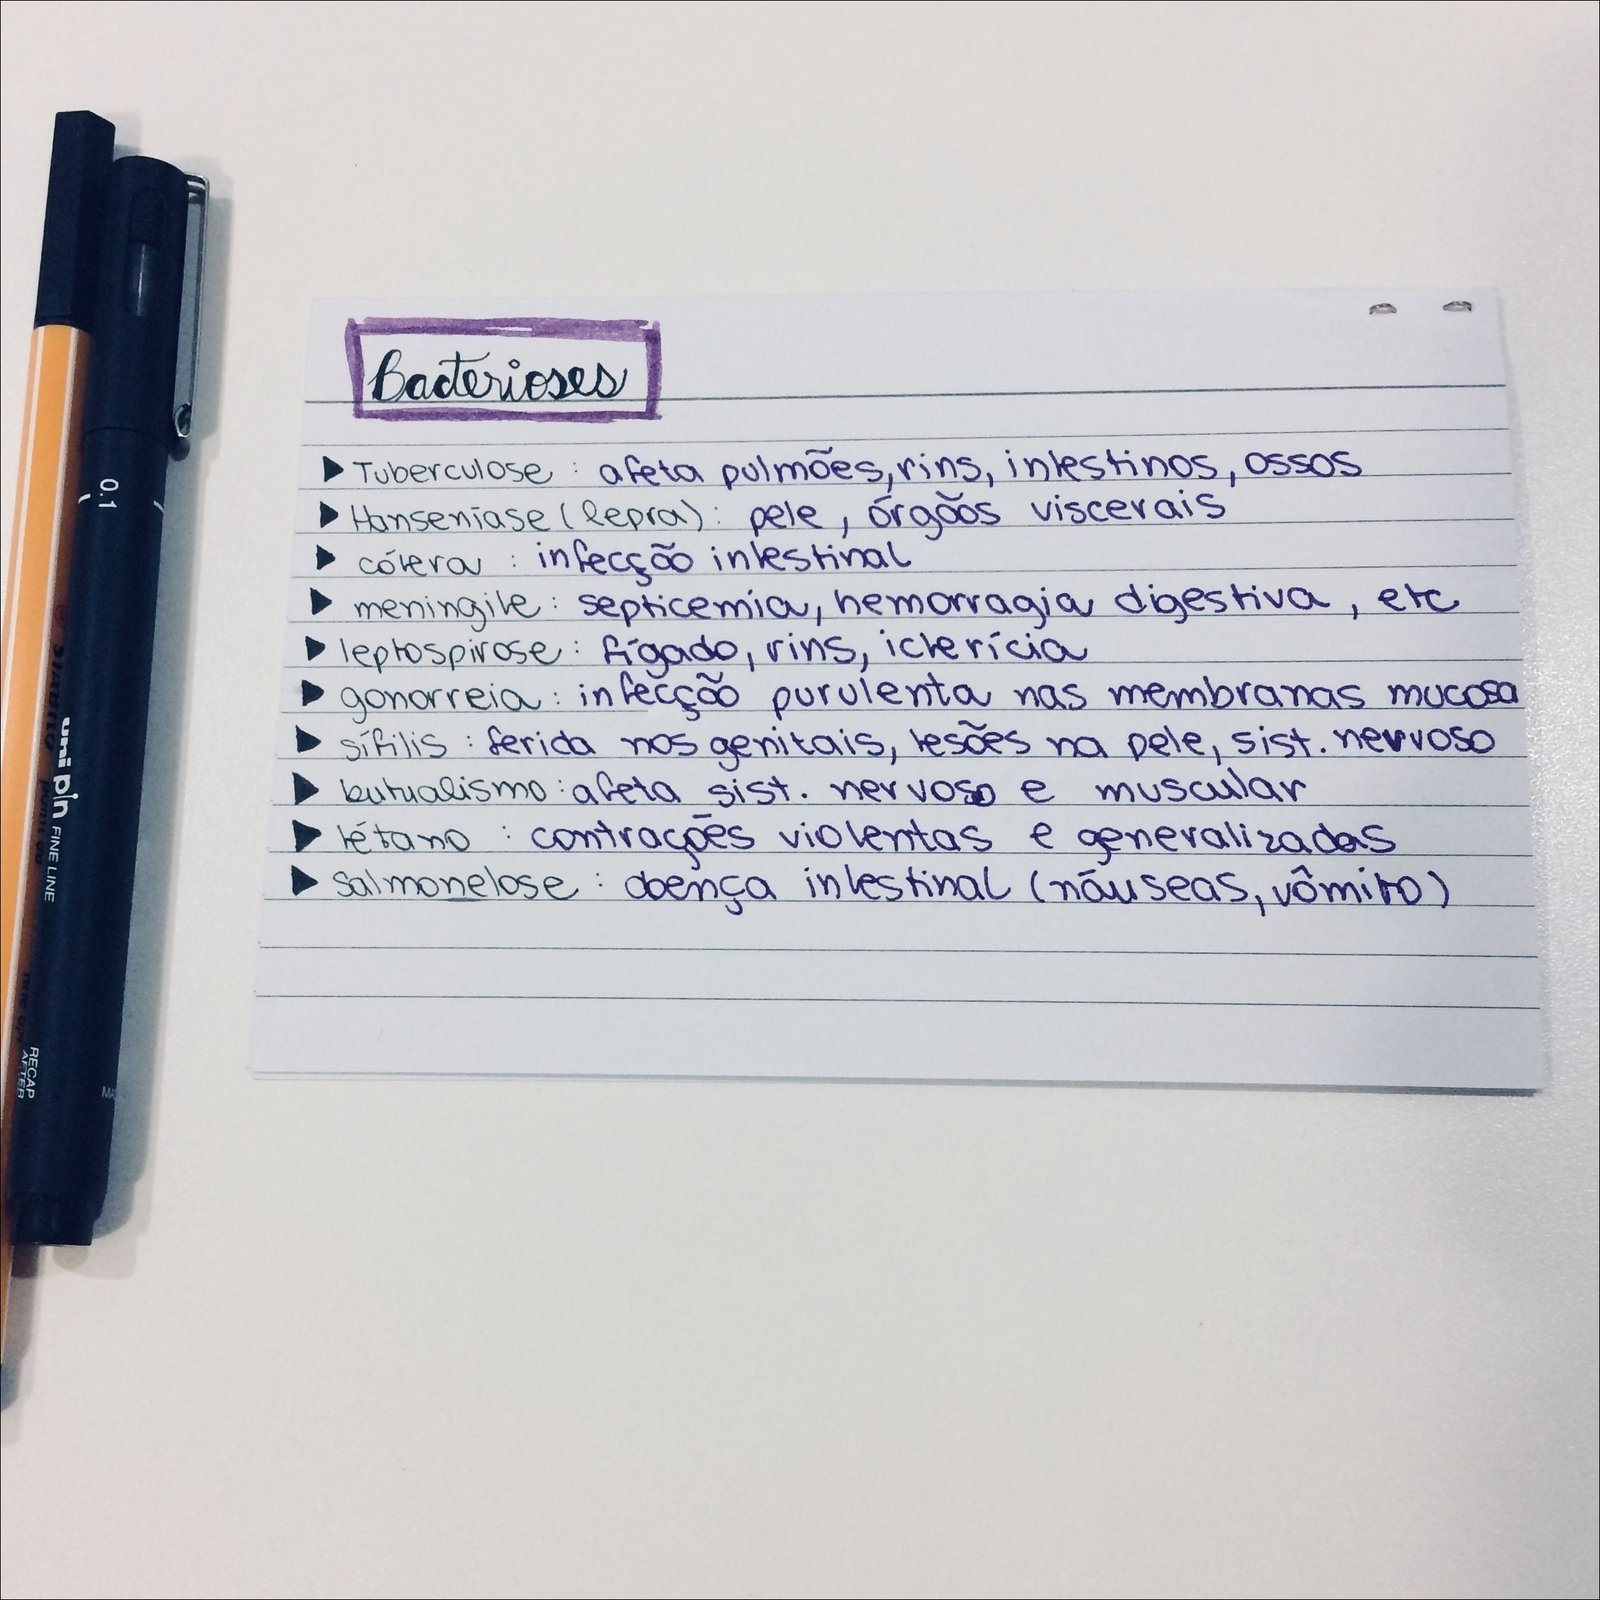 Bacterioses
▶ Tuberculose : afeta pulmões, rins, intestinos, ossos
▶ Hanseníase (lepra) : pele, órgãos viscerais
▶ cólera : infecção intestinal
▶ meningite : septicemia, hemorragia digestiva, etc
▶ leptospirose : fígado, rins, icterícia
▶ gonorreia : infecção purulenta nas membranas mucosa
▶ sífilis : ferida nos genitais, lesões na pele, sist. nervoso
▶ butualismo : afeta sist. nervoso e muscular
▶ tétano : contrações violentas e generalizadas
▶ Salmonelose : doença intestinal (náuseas, vômito)
0.1
uni pin FINE LINE
RECAP AFTER